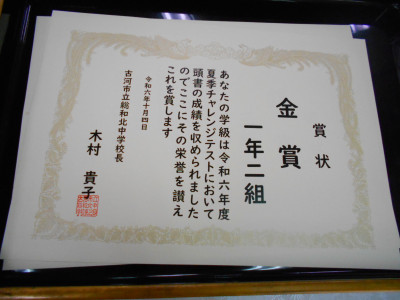 賞状
金賞
一年二組
あなたの学級は令和六年度
夏季チャレンジテストにおいて
頭書の成績を収められました
のでここにその栄誉を讃え
これを賞します
令和六年十月四日
古河市立総和北中学校長
木村貴子